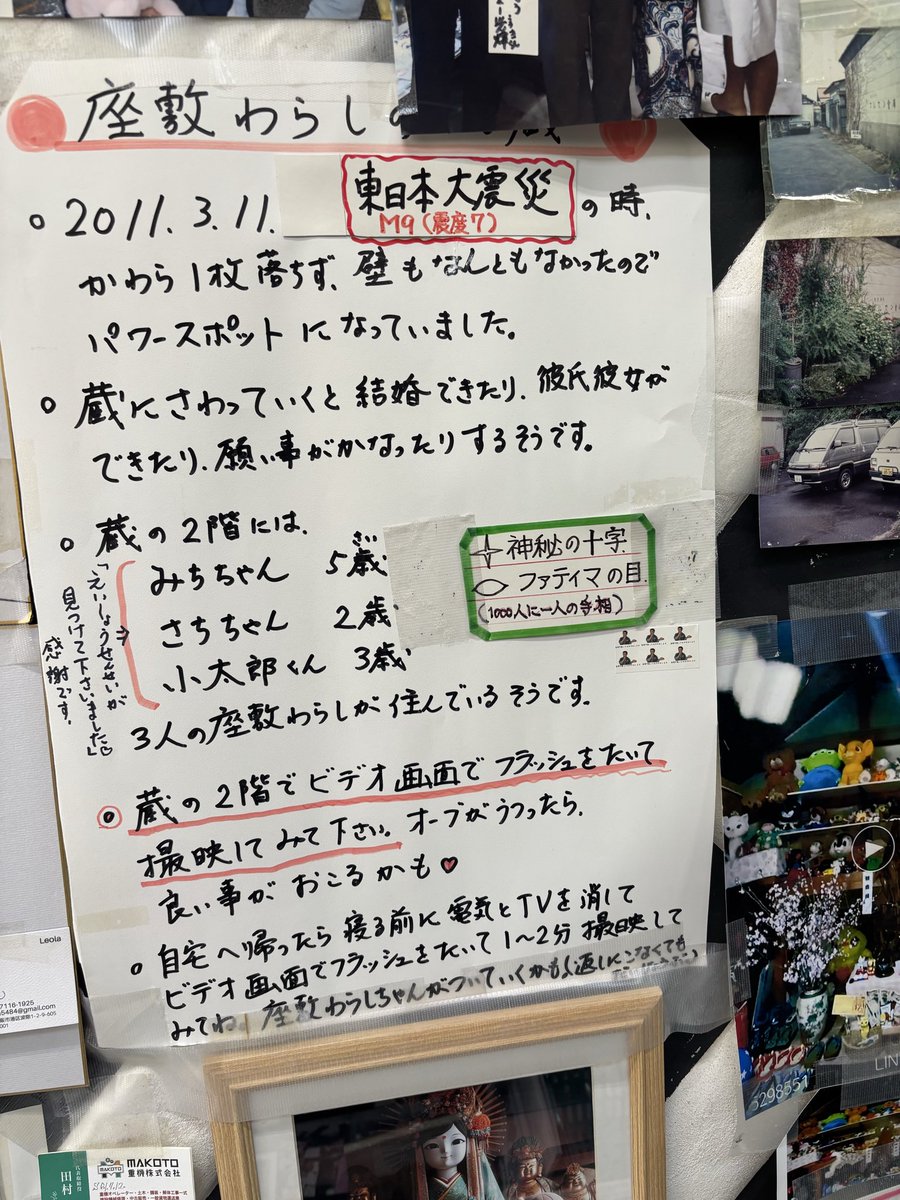 座敷わらしの
蔵
。2011.3.11. 東日本大震災 の時、
M9(震度7)
かわら1枚落ちず、壁もなんともなかったので
パワースポットになっていました。
。蔵にさわっていくと結婚できたり、彼氏彼女が
できたり、願い事がかなったりするそうです。
。蔵の2階には、
みちちゃん 5歳
さい
さちちゃん 2歳
小太郎くん 3歳
「えいしょうせんせいが
見つけて下さいました♡」
感謝です。
神秘の十字.
ファティマの目.
(1000人に一人の手相)
3人の座敷わらしが住んでいるそうです。
。蔵の2階でビデオ画面でフラッシュをたいて
撮映してみて下さい。オーブがうつったら、
良い事がおこるかも♥
。自宅へ帰ったら寝る前に電気とTVを消して
ビデオ画面でフラッシュをたいて1〜2分撮映して
みてね 座敷わらしちゃんがついていくかも(返しにこなくても
Leola
7116-1925
5484@gmail.com
1-2-9-605
001
5298551
LIN
MAKOTO
重機株式会社
田村